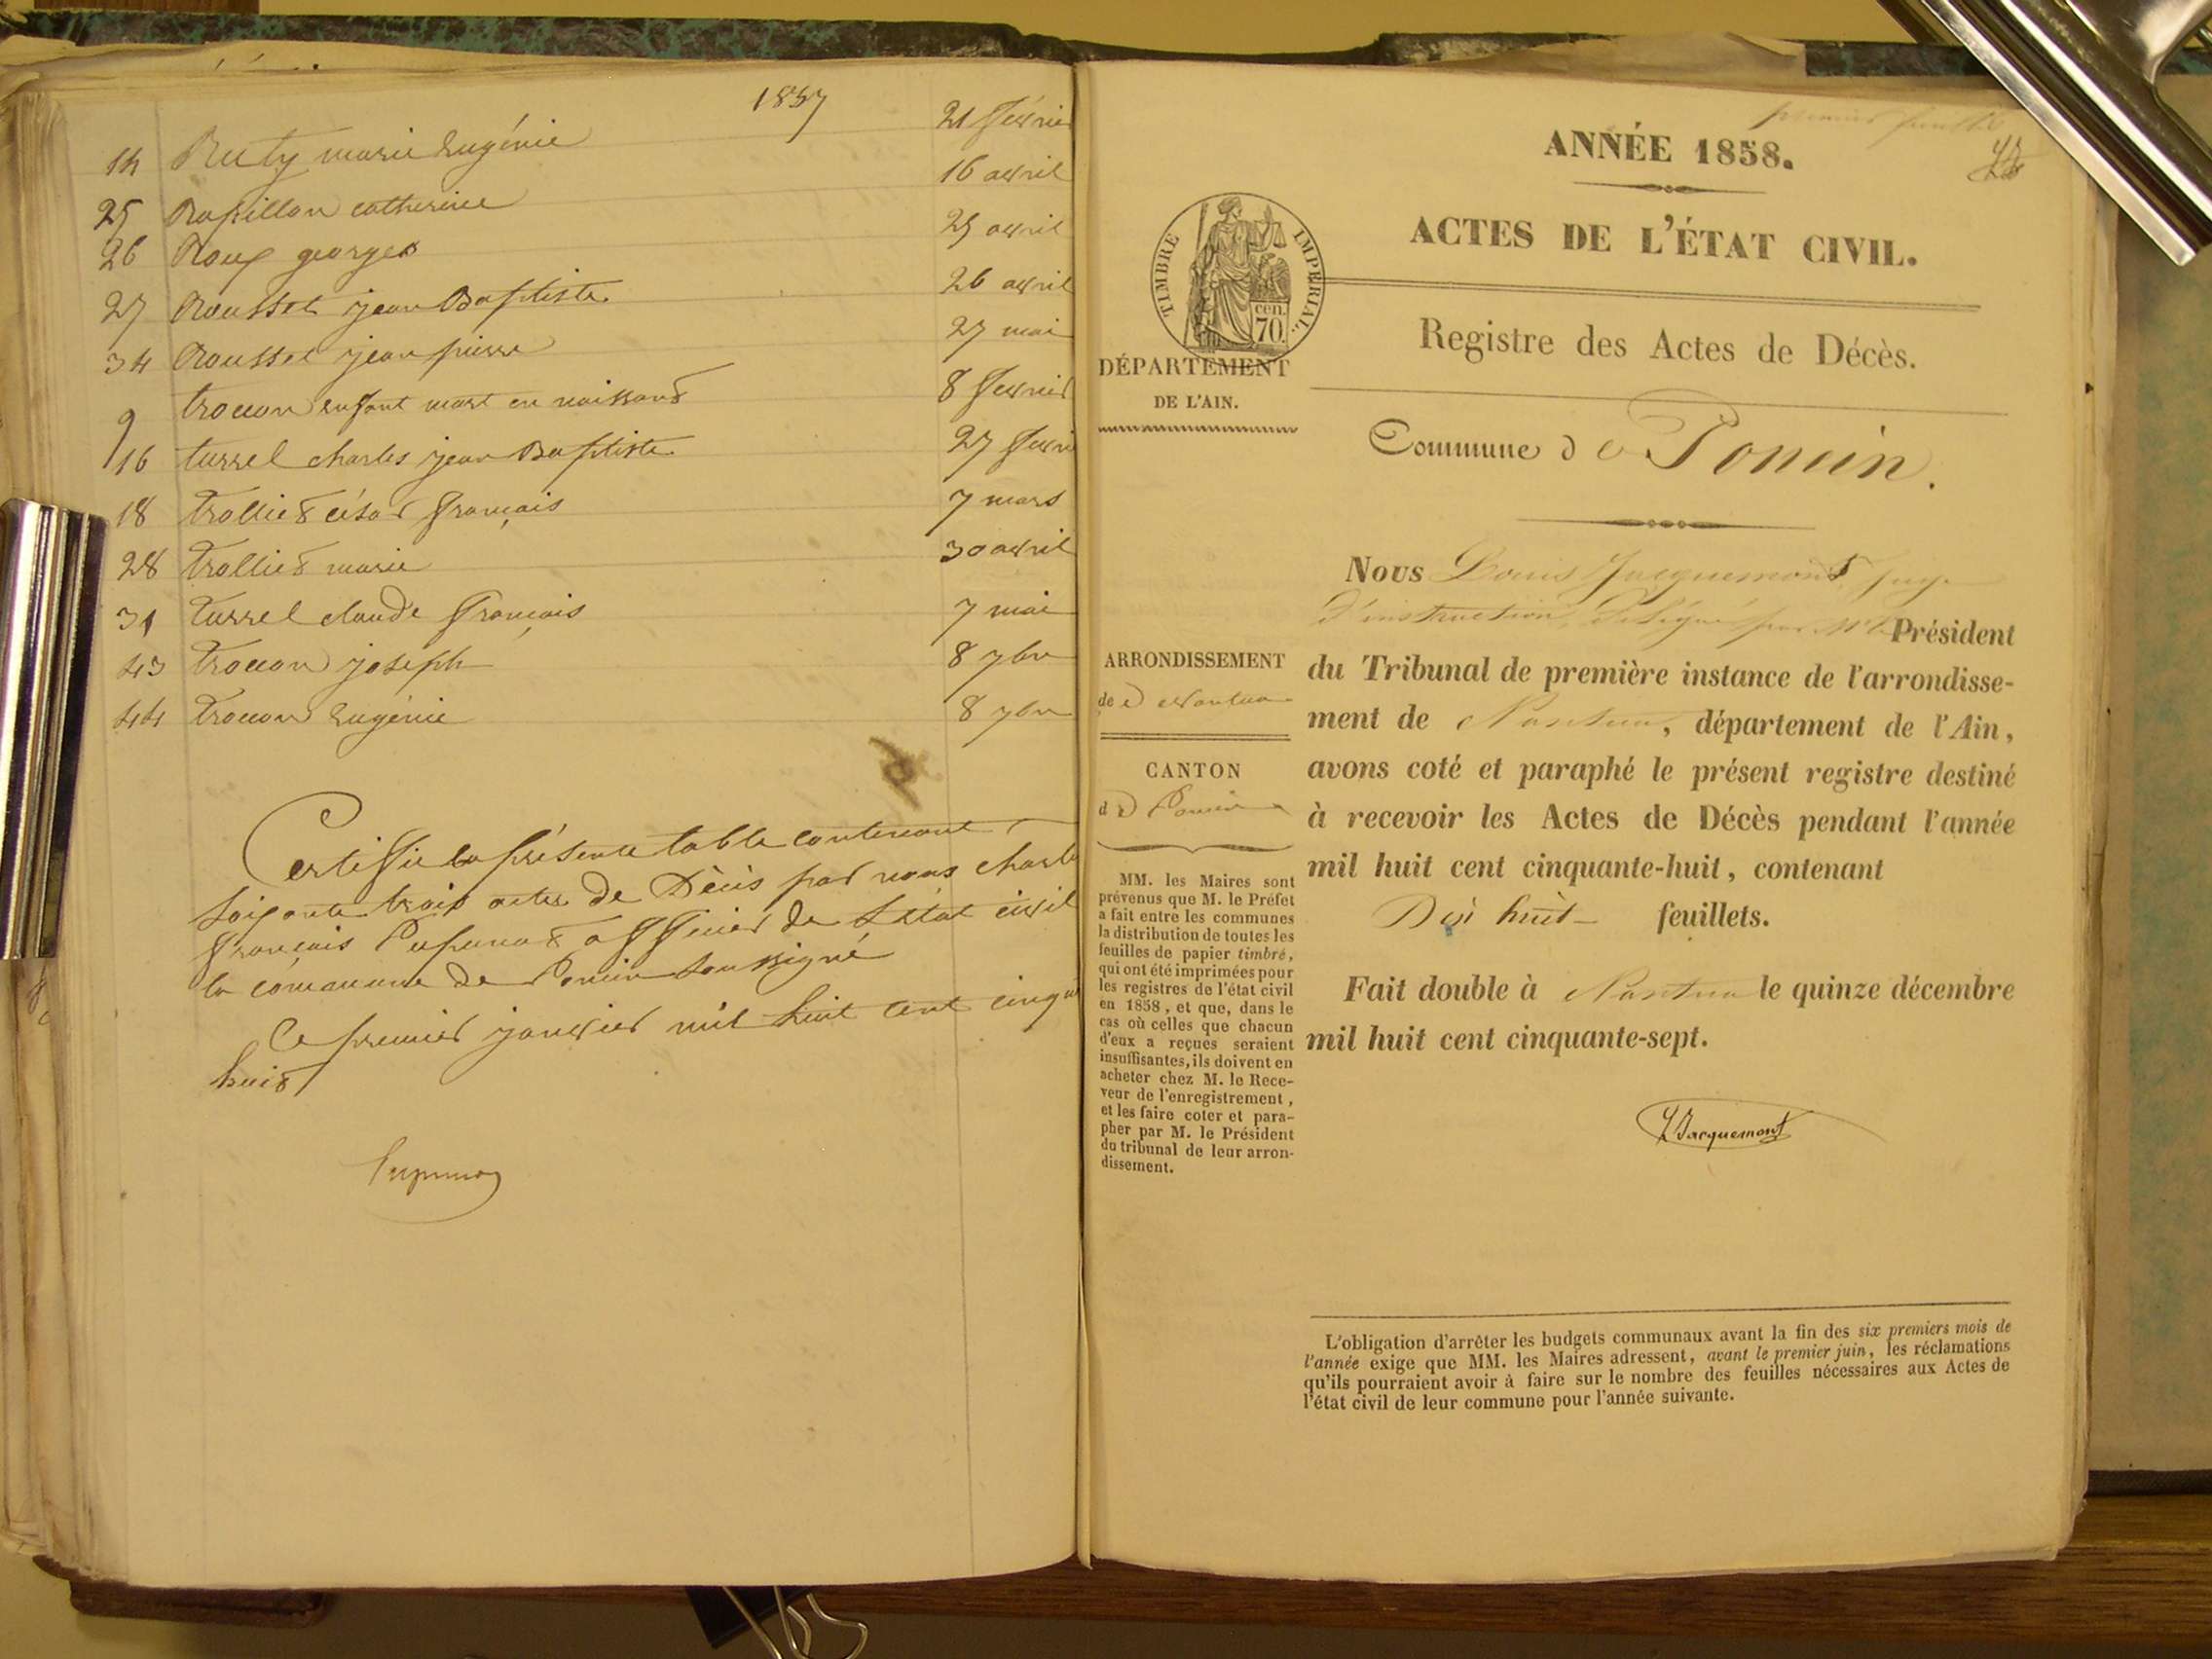 1857
14 Ruty marie Eugénie 21 février
25 Rapillon catherine 16 avril
26 Roux georges 25 avril
27 Rousset jean Baptiste 26 avril
34 Rousset jean pierre 27 mai
9 trocon enfant mort en naissant 8 fevrier
16 turrel charles jean Baptiste 27 fevri
18 trolliet césar françois 7 mars
28 trolliet marie 30 avril
31 turrel claude françois 7 mai
43 trocon joseph 8 7bre
44 trocon Eugénie 8 7bre
Certifie la présente table contenant
soixante trois actes de Décès par nous charles
françois Pupunat officier de l'état civil
la commune de Poncin soussigné
Ce premier janvier mil huit cent cinqu
huit
Pupunat
premier feuillet
ANNÉE 1858.
ACTES DE L'ÉTAT CIVIL.
TIMBRE IMPÉRIAL.
cen.
70.
DÉPARTEMENT
DE L'AIN.
Registre des Actes de Décès.
Commune de Poncin.
Nous Louis Jacquemont, juge
d'instruction, Délégué par Mr le Président
du Tribunal de première instance de l'arrondisse-
ment de Nantua, département de l'Ain,
avons coté et paraphé le présent registre destiné
à recevoir les Actes de Décès pendant l'année
mil huit cent cinquante-huit, contenant
Dix huit feuillets.
Fait double à Nantua le quinze décembre
mil huit cent cinquante-sept.
LJacquemont
ARRONDISSEMENT
de Nantua
CANTON
de Poncin
MM. les Maires sont
prévenus que M. le Préfet
a fait entre les communes
la distribution de toutes les
feuilles de papier timbré,
qui ont été imprimées pour
les registres de l'état civil
en 1858, et que, dans le
cas où celles que chacun
d'eux a reçues seraient
insuffisantes, ils doivent en
acheter chez M. le Rece-
veur de l'enregistrement,
et les faire coter et para-
pher par M. le Président
du tribunal de leur arron-
dissement.
L'obligation d'arrêter les budgets communaux avant la fin des six premiers mois de
l'année exige que MM. les Maires adressent, avant le premier juin, les réclamations
qu'ils pourraient avoir à faire sur le nombre des feuilles nécessaires aux Actes de
l'état civil de leur commune pour l'année suivante.